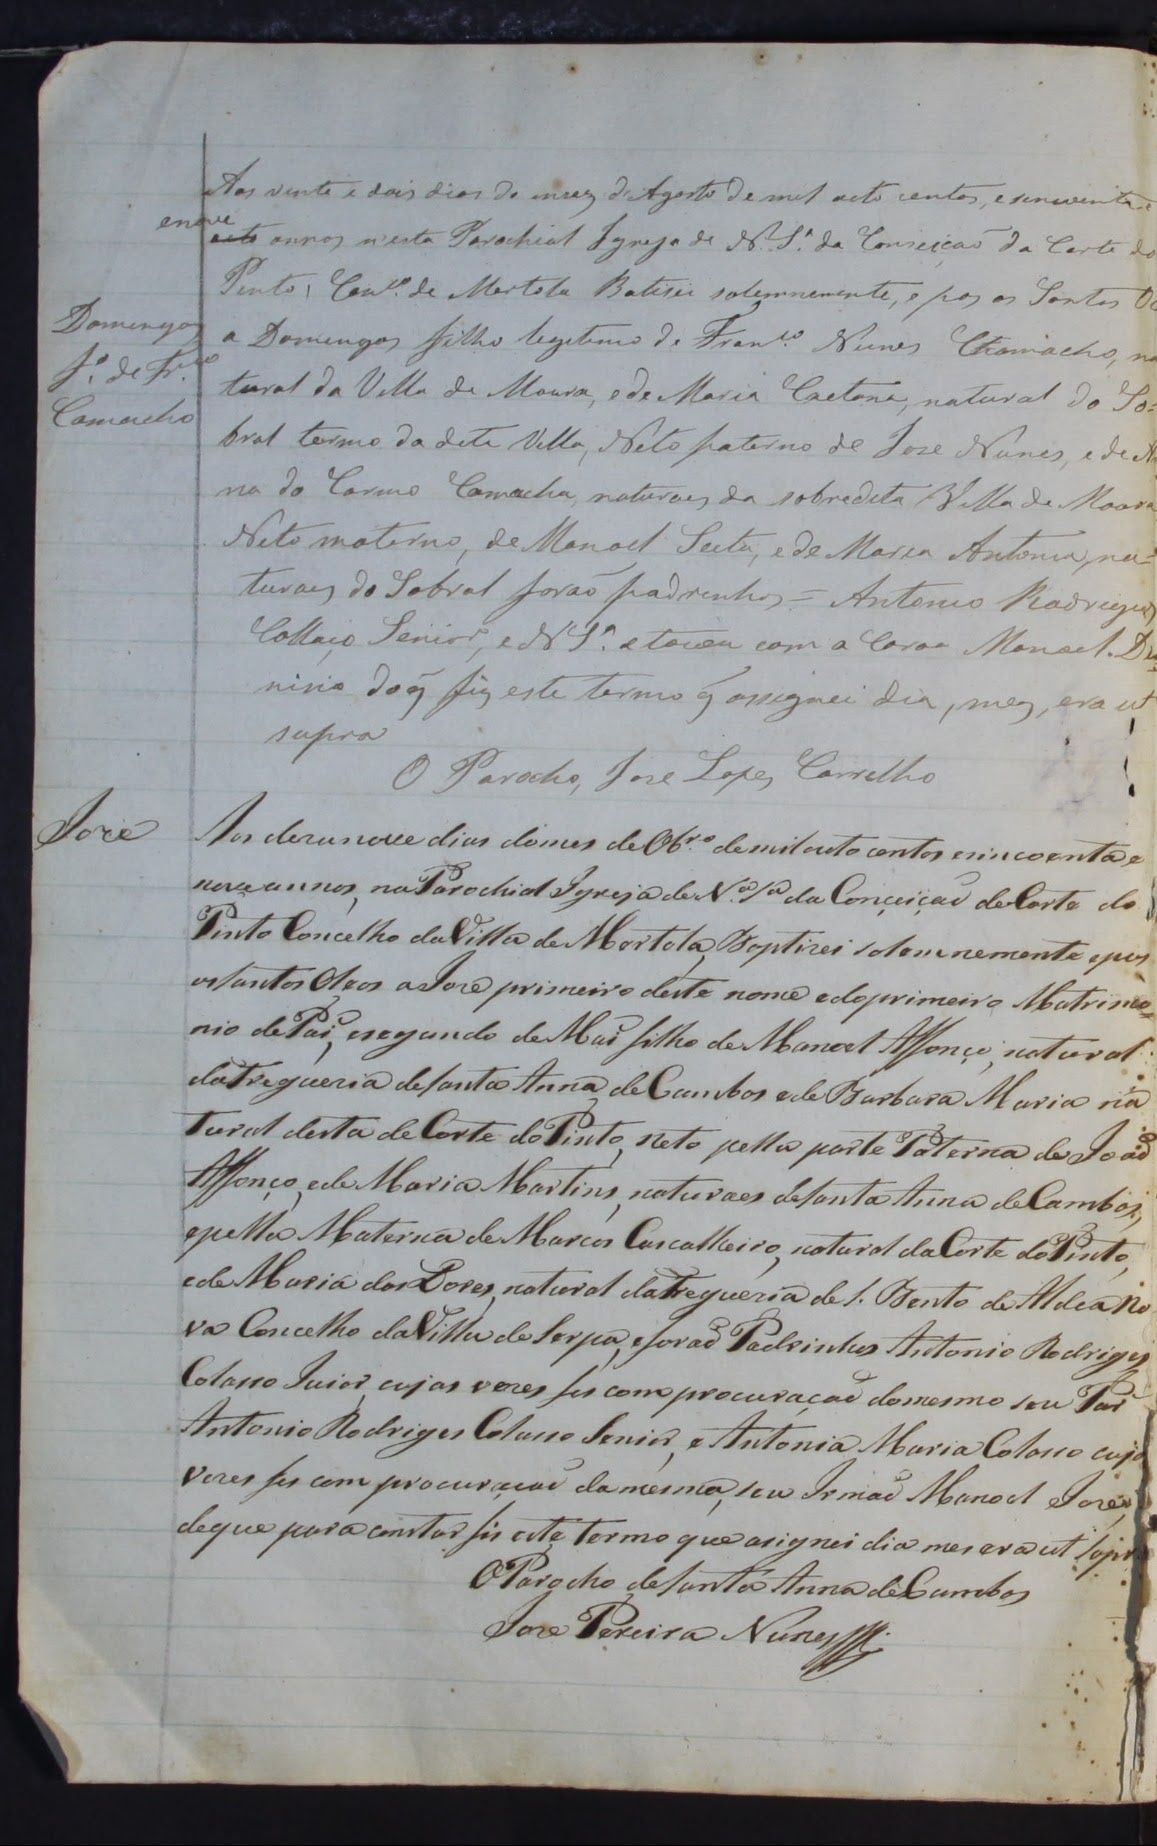 Aos vinte e dois dias do mez d'Agosto de mil oito centos, e sincoenta e
e nove
oito annos n'esta Parochial Igreja de N. Sª. da Conseição da Corte do
Pinto, Conº. de Mertola Batisei solemnemente, e pos os Santos
Domingos
fº. de Frco
Camacho
a Domingos filho legitimo de Franco. Nunes Chamacho, na
tural da Villa de Moura, e de Maria Caetana, natural do So=
bral termo da dita Villa, Neto paterno de Joze Nunes, e de An
na do Carmo Camacha, naturaes da sobredita Villa de Moura
Neto materno, de Manoel Seita, e de Maria Antonia, na=
turaes do Sobral forão padrinhos = Antonio Rodrigues
Collaço Senior, e N Sª. e tocou com a Coroa Manoel.
nisio do q̃ fiz este termo q̃ assignei dia, mez, era ut
supra
O Parocho, Joze Lopes Carrelho
Joze
Aos dezanove dias do mes de Obro de mil outo centos e sincoenta e
nove annos, na Parochial Igreja de N.ª Sª da Conçeiçaõ de Corte do
Pinto Concelho da Villa de Mertola, Boptizei solemnemente e pus
os santos Oleos a Joze primeiro deste nome e do primeiro Matrimo=
nio de Pai, e segundo de Mai filho de Manoel Affonço, natural
da Fregueria de santa Anna de Cambos e de Barbara Maria na
tural desta de Corte do Pinto, neto pella parte Paterna de Joaõ
Affonço, e de Maria Martins, naturaes de santa Anna de Cambos,
e pella Materna de Marcos Cascalheiro, natural da Corte do Pinto,
e de Maria das Dores, natural da Fregueria de S. Bento de Aldea No
va Concelho da Villa de Serpa, e foraõ Padrinhos Antonio Rodriges
Colasso Juior, cujas vezes fes com procuraçaõ do mesmo seu Pai
Antonio Rodriges Colasso Senior, e Antonia Maria Colasso cujas
vezes fes com procuraçaõ da mesma, seu Irmaõ Manoel e Joze,
de que para constar fis este termo que asignei dia mes era ut supra
O Parocho de santa Anna de Cambos
Joze Pereira Nunes